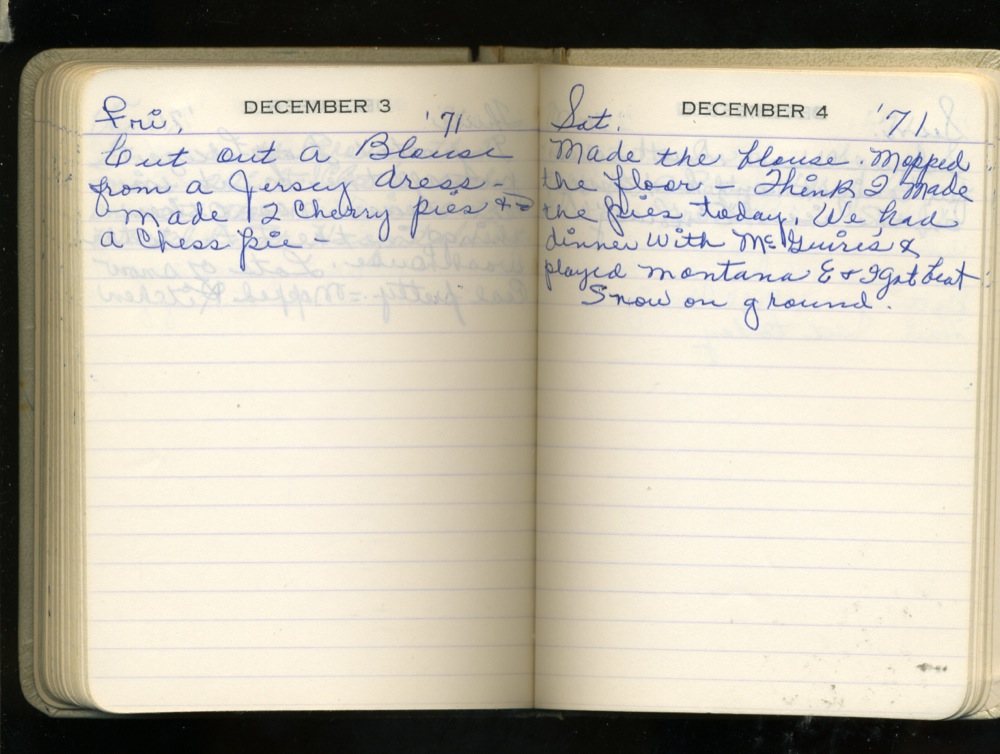 DECEMBER 3
Fri. '71
Cut out a Blouse
from a Jersey dress -
Made 2 Cherry pies &
a Chess pie -
DECEMBER 4
Sat. '71
Made the blouse. Mopped
the floor - Think I made
the pies today. We had
dinner with McGuire's &
played Montana E & I got beat
Snow on ground.